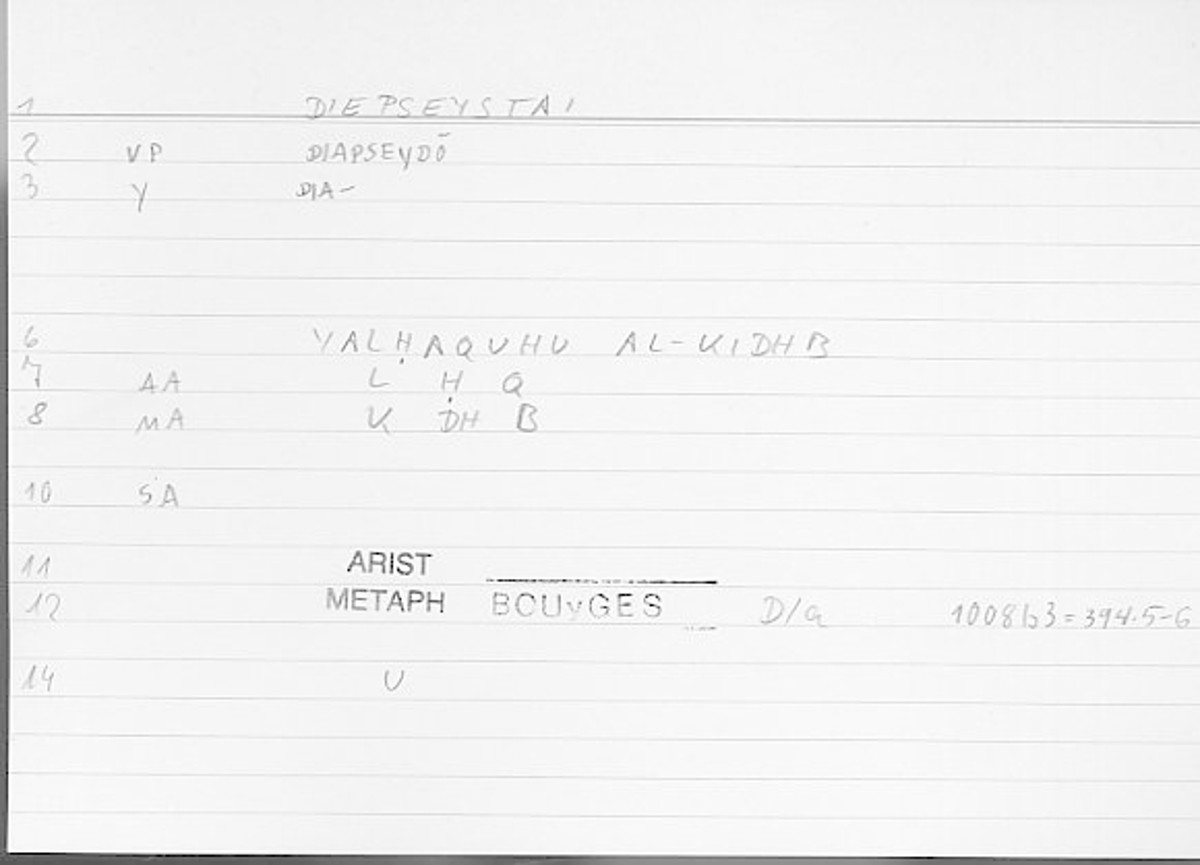 1 DIEPSEYSTAI
2 VP DIAPSEYDŌ
3 Y DIA-
6 YALḤAQUHU AL-KIDHB
7 AA L Ḥ Q
8 MA K DH B
10 SA
11 ARIST
12 METAPH BOUYGES D/a 1008b3=394.5-6
14 U